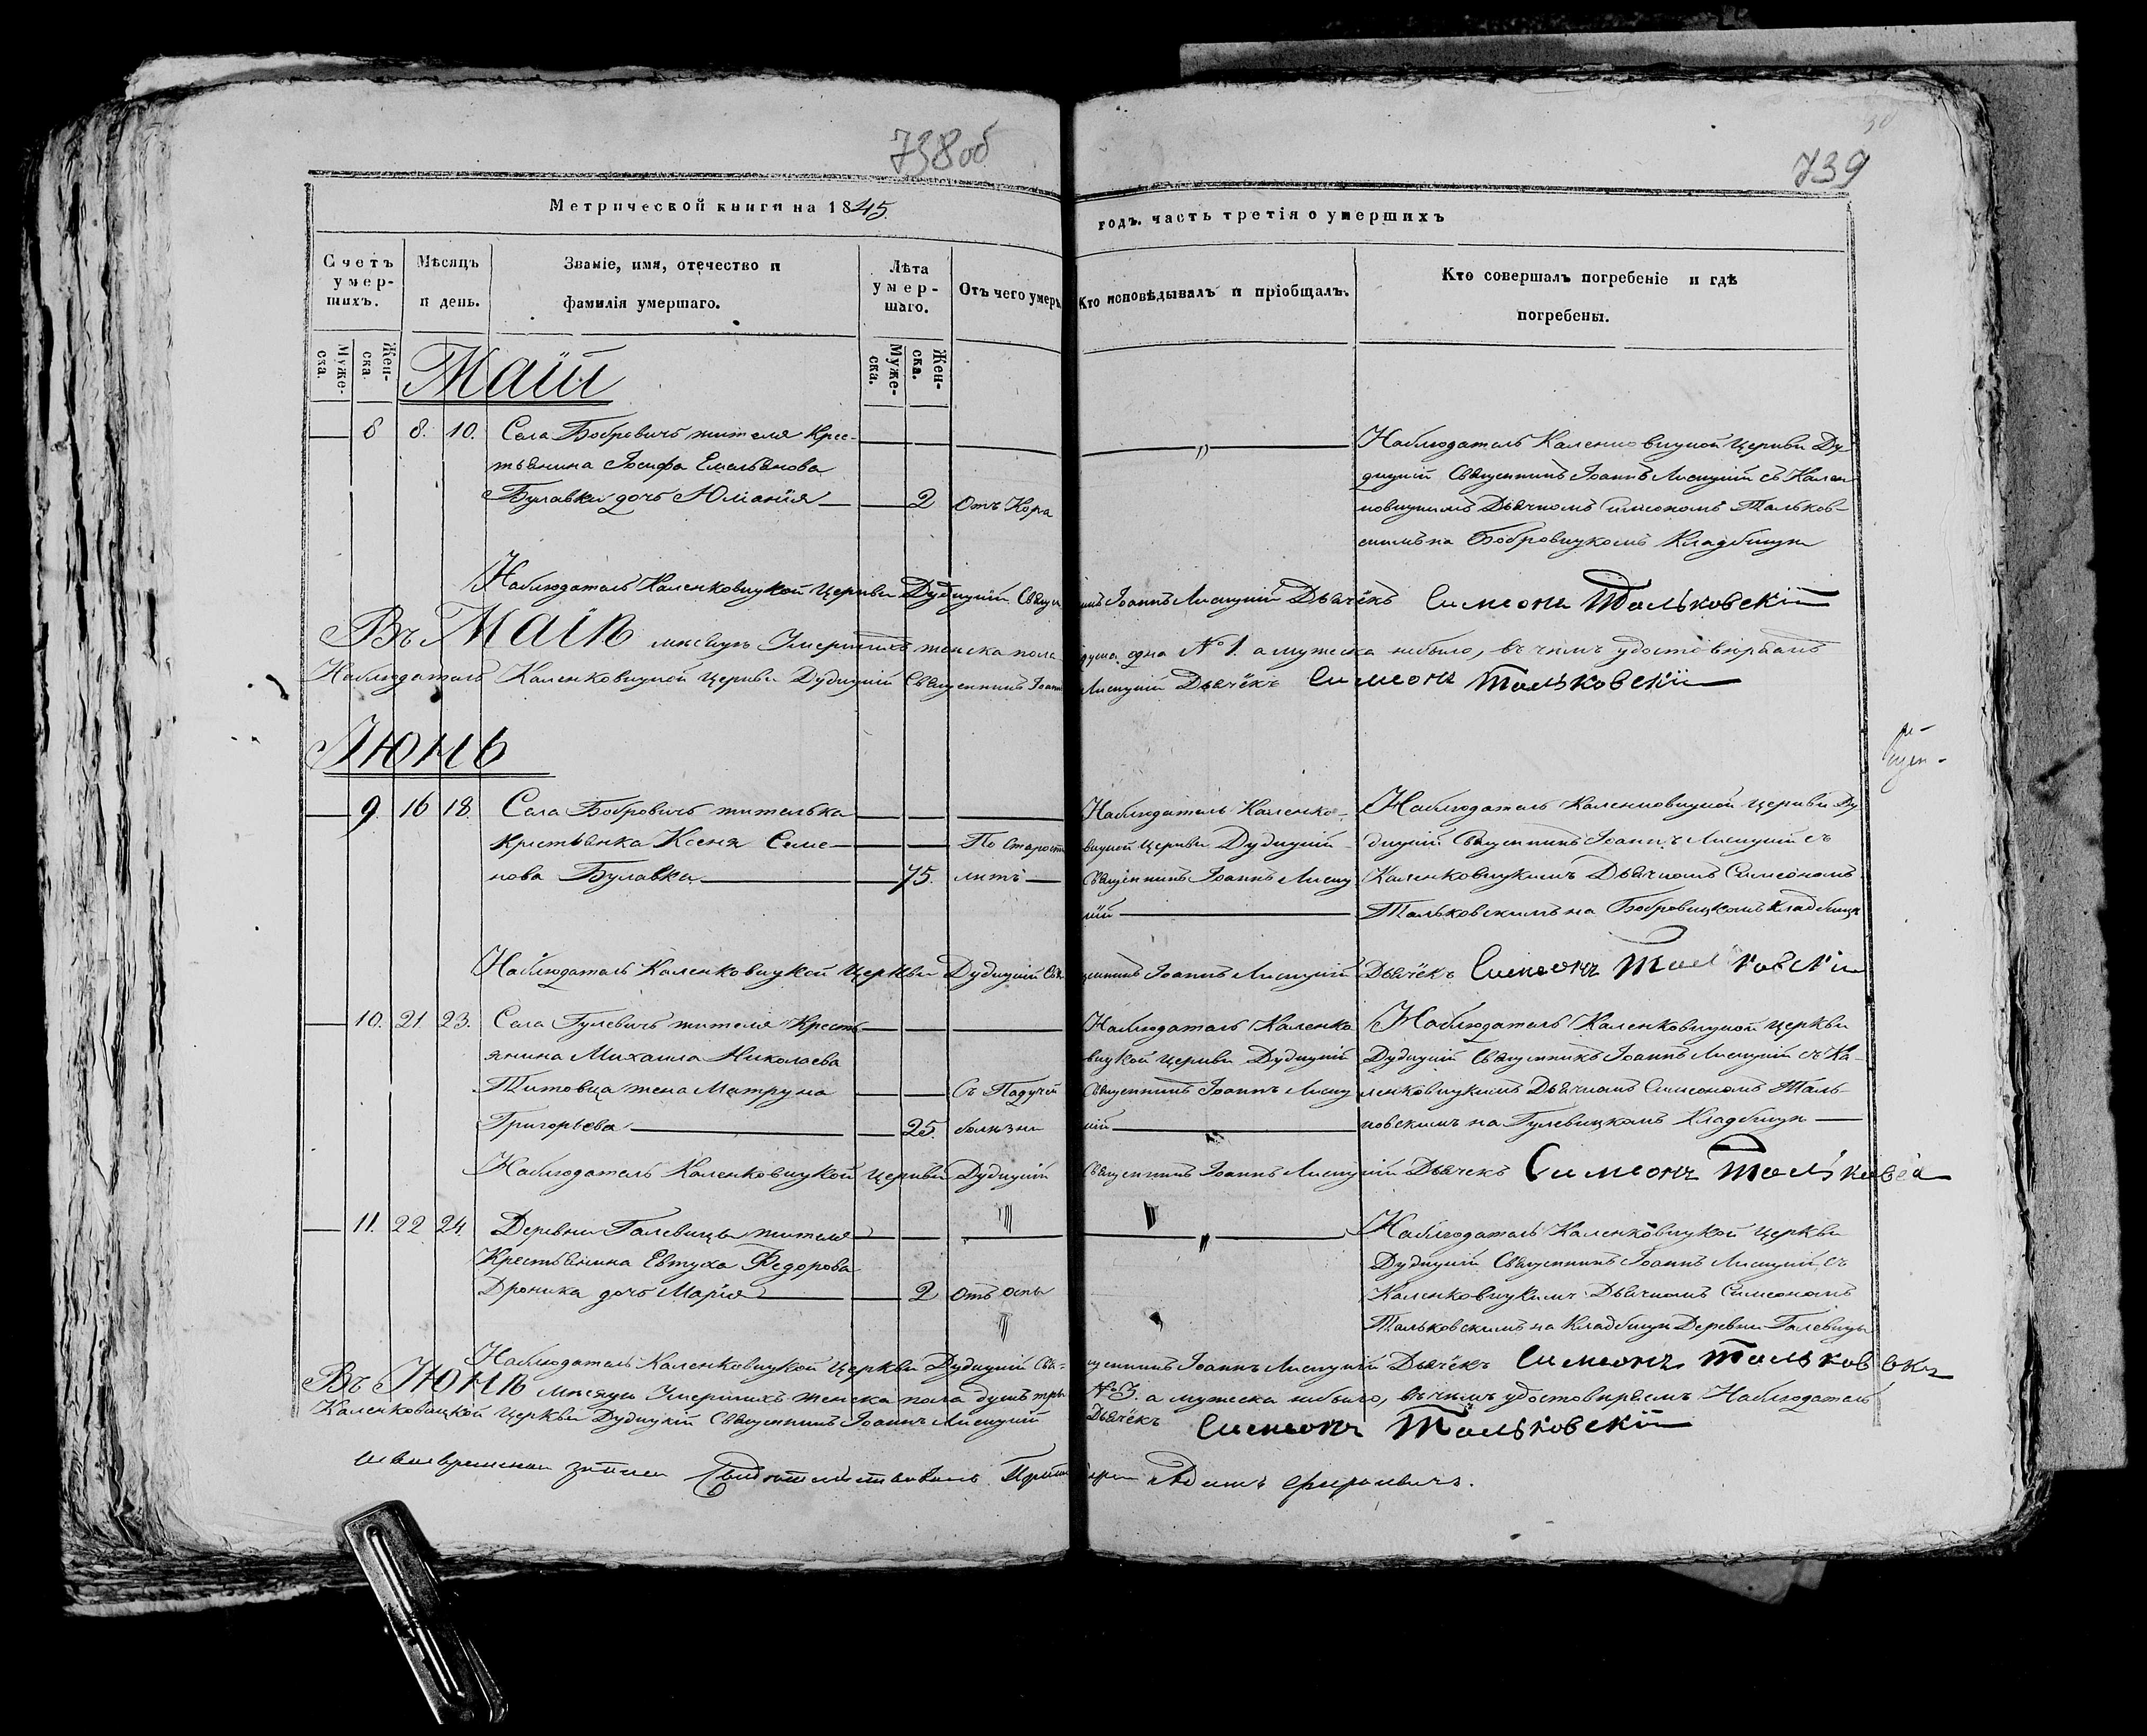 738 об
739
Метрической книги на 1845.
годъ. часть третія о умершихъ
Счетъ умер-шихъ.
Мѣсяцъ и день.
Званіе, имя, отечество и фамилія умершаго.
Лѣта умер-шаго.
Отъ чего умеръ
Кто исповѣдывалъ и пріобщалъ.
Кто совершалъ погребеніе и гдѣ погребены.
Муже-ска.
Жен-ска.
Муже-ска.
Жен-ска.
Маій
8 8. 10. Села Бобровичъ жителя Крес-
тьянина Іосифа Емельянова
Булавки дочь Юліанія 2 Отъ Кора
Наблюдатель Каленковицкой Церкви Ду-
дицкій Священникъ Іоаннъ Лисицкій съ Кален
ковицкимъ Дьячкомъ Симеономъ Тальков-
скимъ на Бобровицкомъ Кладбищи
Наблюдатель Каленковицкой Церкви Дудицкій Священ
никъ Іоаннъ Лисицкій Дьячёкъ Симеонъ Тальковскій
Въ Маіи мѣсяцѣ Умершихъ женска пола
душа одна № 1. а мужеска небыло, въ чемъ удостовѣряемъ
Наблюдатель Каленковицкой Церкви Дудицкій Священникъ Іоаннъ
Лисицкій Дьячёкъ Симеонъ Тальковскій
Іюнь
9. 16 18. Села Бобровичъ жителька
крестьянка Ксеня Семе- По старости
нова Булавка 75. лѣтъ
Наблюдатель Каленко-
вицкой Церкви Дудицкій
Священникъ Іоаннъ Лисиц
кій
Наблюдатель Каленковицкой Церкви Ду
дицкій Священникъ Іоаннъ Лисицкій съ
Каленковицкимъ Дьячкомъ Симеономъ
Тальковскимъ на Бобровицкомъ Кладбищи
Наблюдатель Каленковицкой Церкви Дудицкій Свя
щенникъ Іоаннъ Лисицкій Дьячёкъ Симеонъ Тальковскій
10. 21. 23. Села Гулевичъ жителя Кресть
янина Михаила Николаева
Титовца жена Матруна Съ Падучей
Григорьева 25. болѣзни
Наблюдатель Каленко
вицкой Церкви Дудицкій
Священникъ Іоаннъ Лисиц
кій
Наблюдатель Каленковицкой Церкви
Дудицкій Священникъ Іоаннъ Лисицкій съ Ка-
ленковицкимъ Дьячкомъ Симеономъ Таль
ковскимъ на Гулевицкомъ Кладбищи
Наблюдатель Каленковицкой Церкви Дудицкій
Священникъ Іоаннъ Лисицкій Дьячекъ Симеонъ Тальковс
11. 22. 24. Деревни Галевицы жителя
Крестьянина Евтуха Федорова
Дроника дочь Марія 2 Отъ оспы
Наблюдатель Каленковицкой Церкви
Дудицкій Священникъ Іоаннъ Лисицкій съ
Каленковицкимъ Дьячкомъ Симеономъ
Тальковскимъ на Кладбищи Деревни Галевицы
Наблюдатель Каленковицкой Церкви Дудицкій Свя-
щенникъ Іоаннъ Лисицкій Дьячёкъ Симеонъ Тальковскій
Въ Іюнѣ мѣсяцѣ Умершихъ женска пола душъ три
№ 3. а мужеска небыло, въ чемъ удостовѣряемъ Наблюдатель
Каленковицкой Церкви Дудицкій Священникъ Іоаннъ Лисицкій
Дьячёкъ Симеонъ Тальковскій
записи Свидетельствовалъ